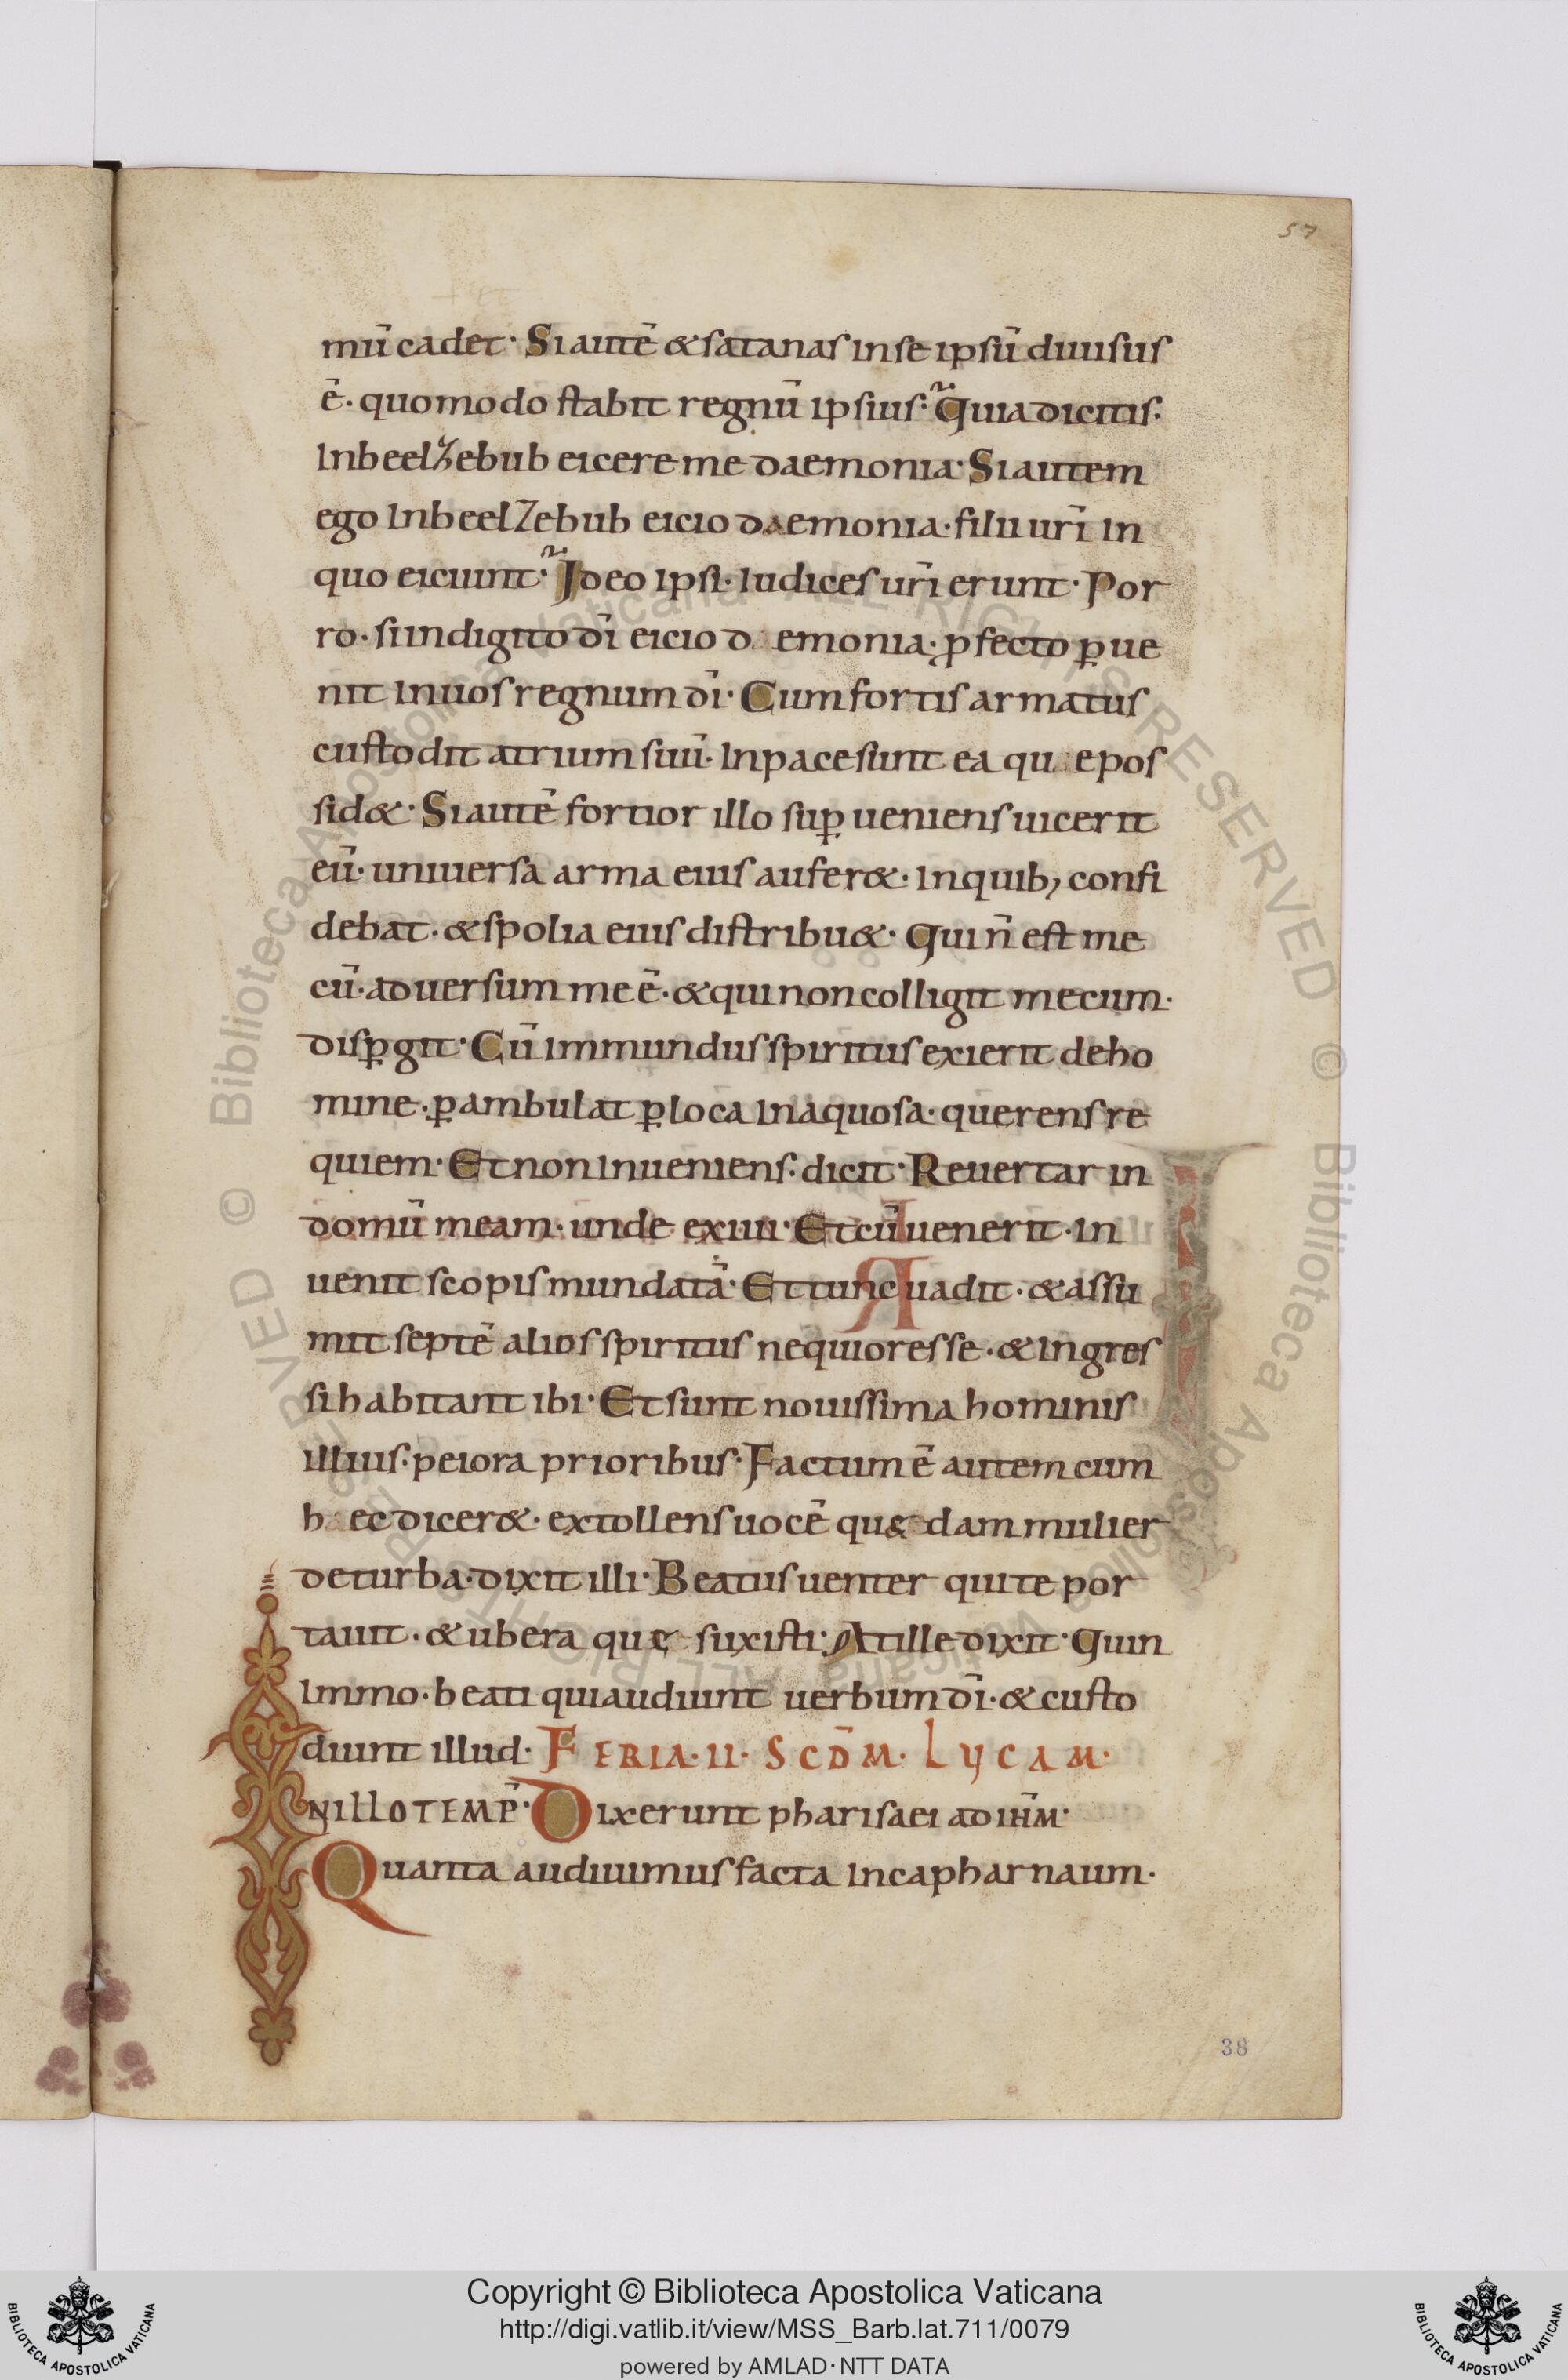 57
mū cadet· Si autē & satanas in se ipsū diuisus
ē· quomodo stabit regnū ipsius· Quia dicitis·
In beelzebub eicere me daemonia· Si autem
ego In beelzebub eicio daemonia· filii uri̅ In
quo eiciunt· Ideo ipsi· Iudices uri̅ erunt· Por
ro· si in digito di̅ eicio d emonia· ꝓfecto ꝑue
nit In uos regnum di̅· Cum fortis armatus
custodit atrium suū· In pace sunt ea qu e pos
sid&· Si autē fortior illo suꝑueniens uicerit
eū· uniuersa arma eius aufer&· In quib; confi
debat· & spolia eius distribu&· Qui n̄ est me
cū· aduersum me ē· & qui non colligit mecum·
disꝑgit· Cū Immundus spiritus exierit de ho
mine· ꝑambulat ꝑ loca Inaquosa· querens re
quiem· Et non Inueniens· dicit· Reuertar in
domū meam· unde exiui· Et cū uenerit· In
uenit scopis mundatā· Et tunc uadit· & assu
mit septē alios spiritus nequiores se· & Ingres
si habitant ibi· Et sunt nouissima hominis
illius· peiora prioribus· Factum ē autem cum
h ec dicer&· extollens uocē quę dam mulier
de turba· dixit illi· Beatus uenter qui te por
tauit· & ubera quę suxisti· At ille dixit· Quin
Immo· beati qui audiunt uerbum di̅· & custo
diunt illud· FERIA· II· SCD̄M· LUCAM·
IN ILLO TEMP̄· Dixerunt pharisaei ad IH̄M·
Quanta audiuimus facta In capharnaum·
38
© Biblioteca Apostolica Vaticana ALL RIGHTS RESERVED
Copyright © Biblioteca Apostolica Vaticana
http://digi.vatlib.it/view/MSS_Barb.lat.711/0079
powered by AMLAD·NTT DATA
BIBLIOTECA APOSTOLICA VATICANA
BIBLIOTECA APOSTOLICA VATICANA